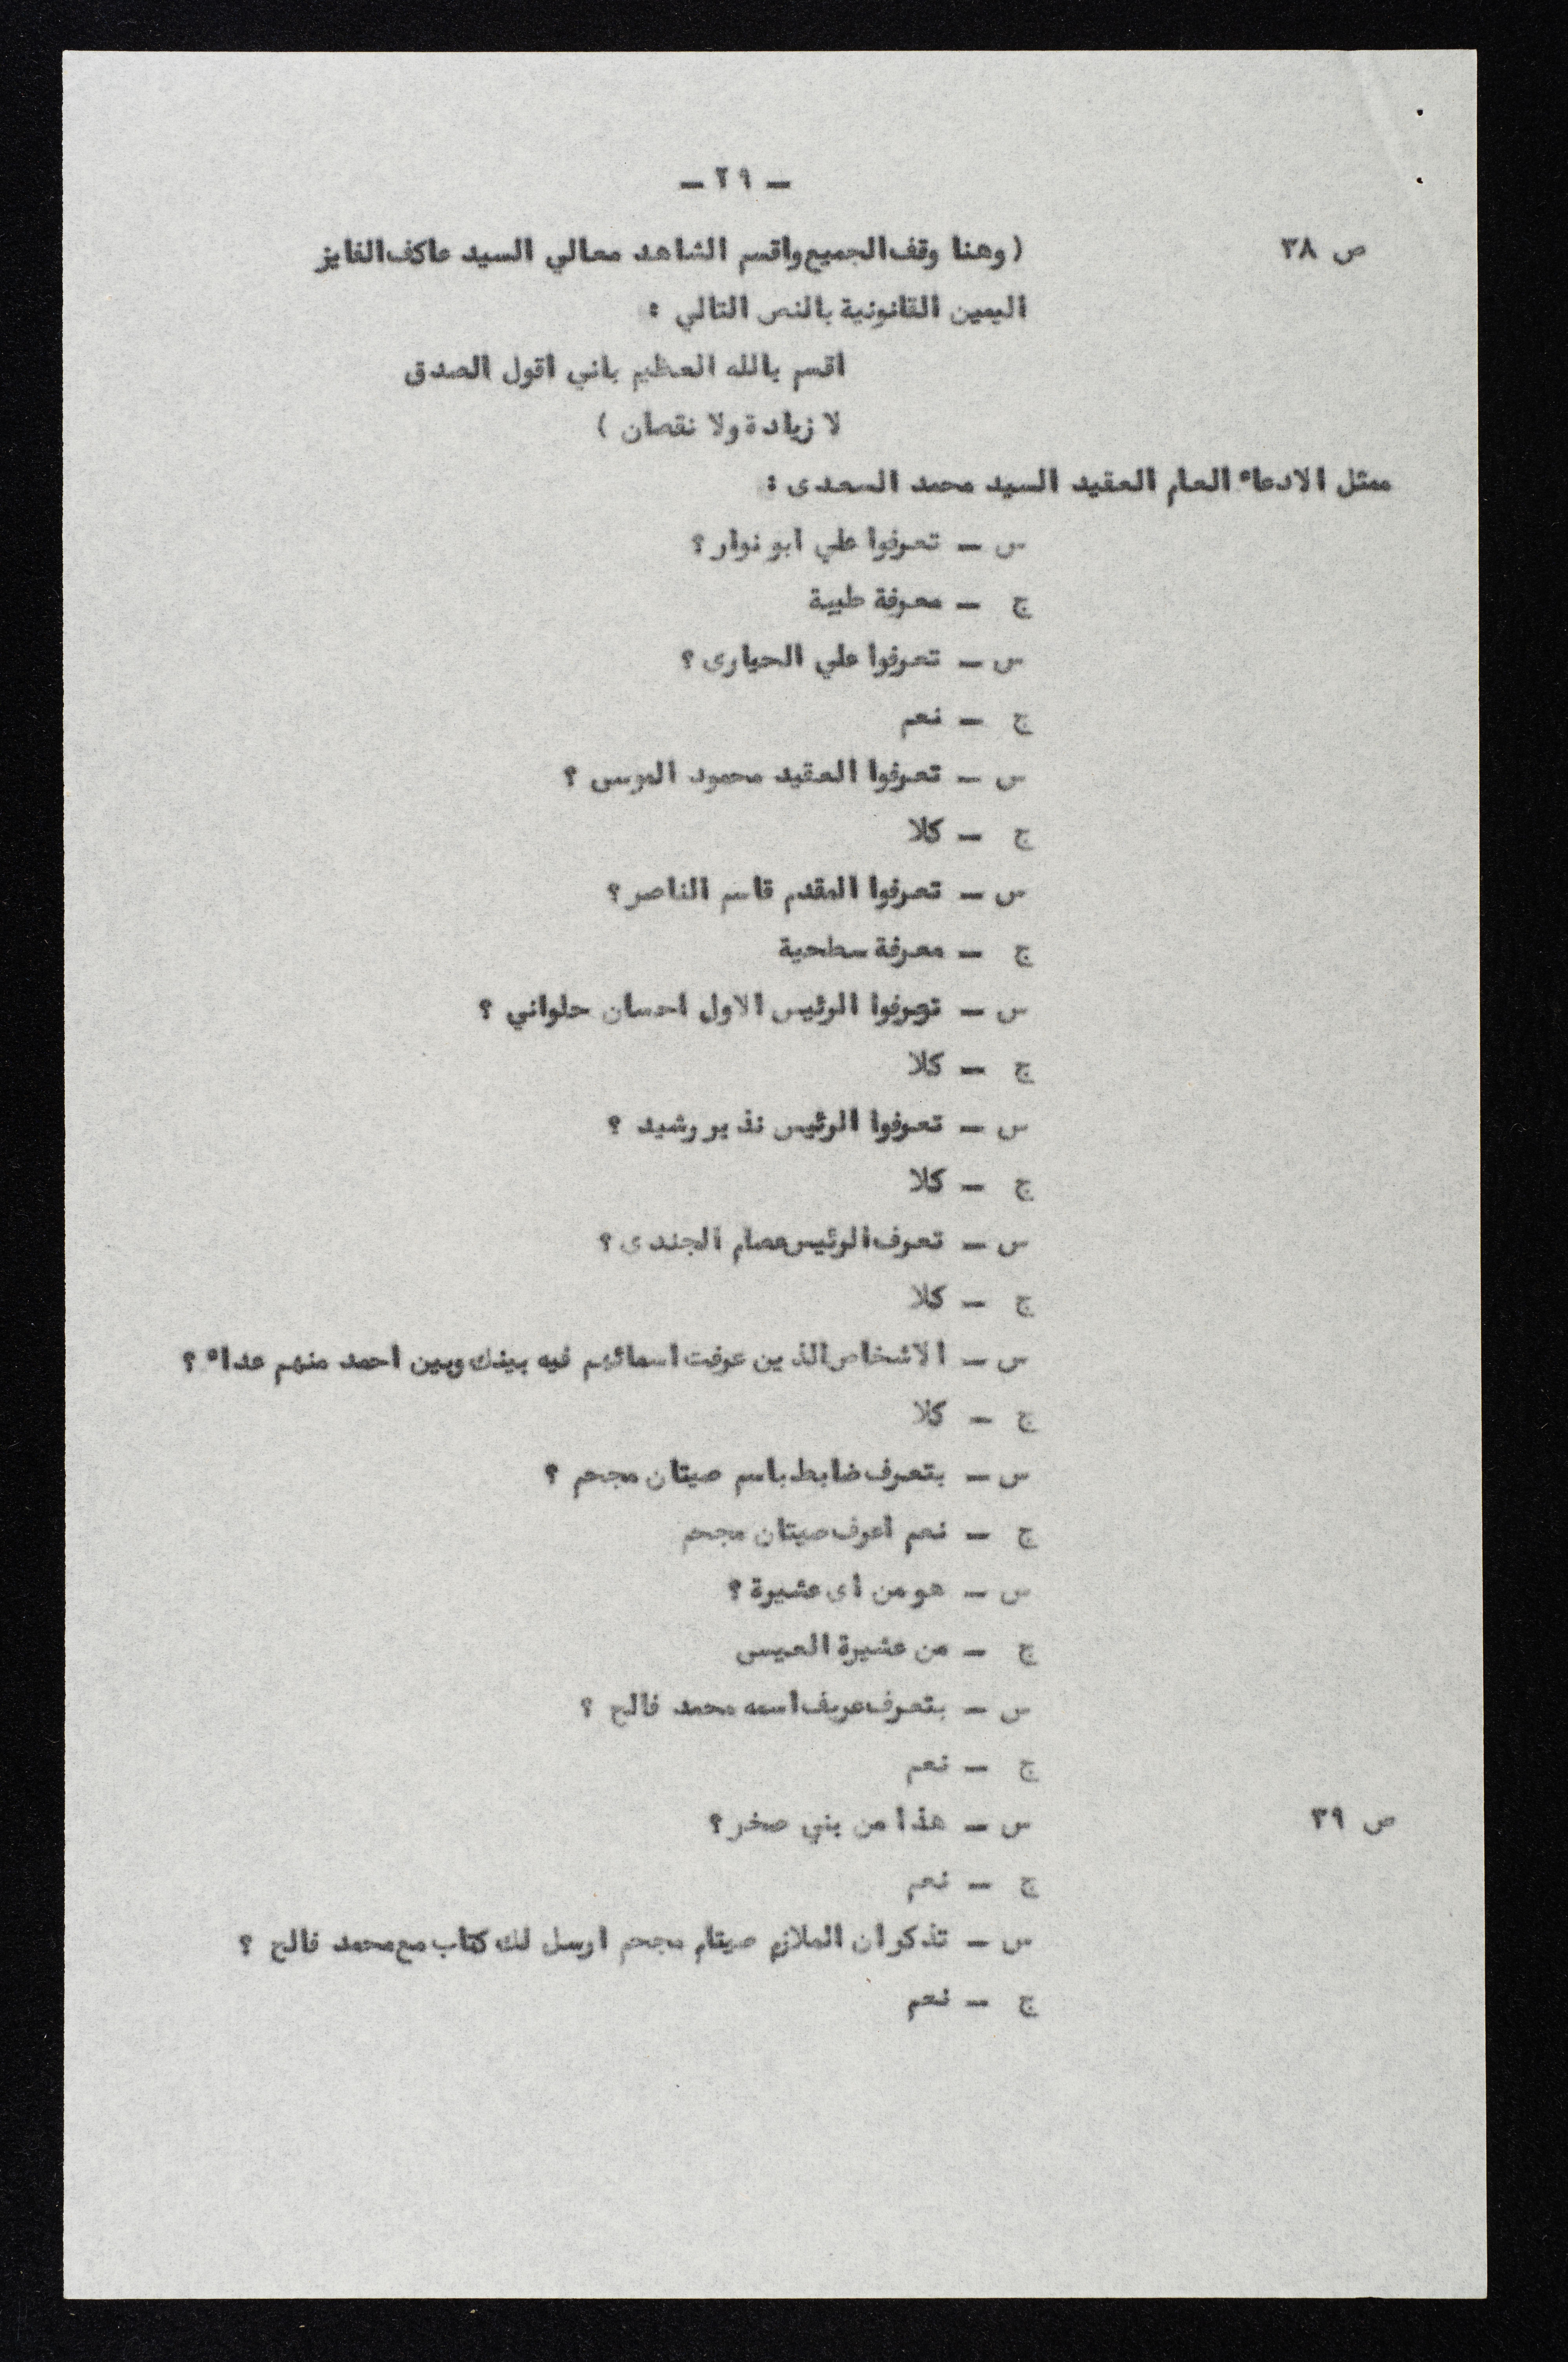 – ٢٩ –
ص ٣٨ ( وهنا وقف الجميع واقسم الشاهد معالي السيد عاكف الفايز
اليمين القانونية بالنص التالي :
اقسم بالله العظيم باني اقول الصدق
لا زيادة ولا نقصان )
ممثل الادعاء العام العقيد السيد محمد السعدى :
س – تعرفوا علي ابو نوار ؟
ج – معرفة طيبة
س – تعرفوا علي الحيارى ؟
ج – نعم
س – تعرفوا العقيد محمود الموسى ؟
ج – كلا
س – تعرفوا المقدم قاسم الناصر ؟
ج – معرفة سطحية
س – تعرفوا الرئيس الاول احسان حلواني ؟
ج – كلا
س – تعرفوا الرئيس نذير رشيد ؟
ج – كلا
س – تعرف الرئيس عصام الجندى ؟
ج – كلا
س – الاشخاص الذين عرفت اسمائهم فيه بينك وبين احمد منهم عداء ؟
ج – كلا
س – بتعرف ضابط باسم صيتان مجحم ؟
ج – نعم اعرف صيتان مجحم
س – هو من اى عشيرة ؟
ج – من عشيرة العيسى
س – بتعرف عريف اسمه محمد فالح ؟
ج – نعم
ص ٣٩ س – هذا من بني صخر ؟
ج – نعم
س – تذكر ان الملازم صيتام مجحم ارسل لك كتاب مع محمد فالح ؟
ج – نعم